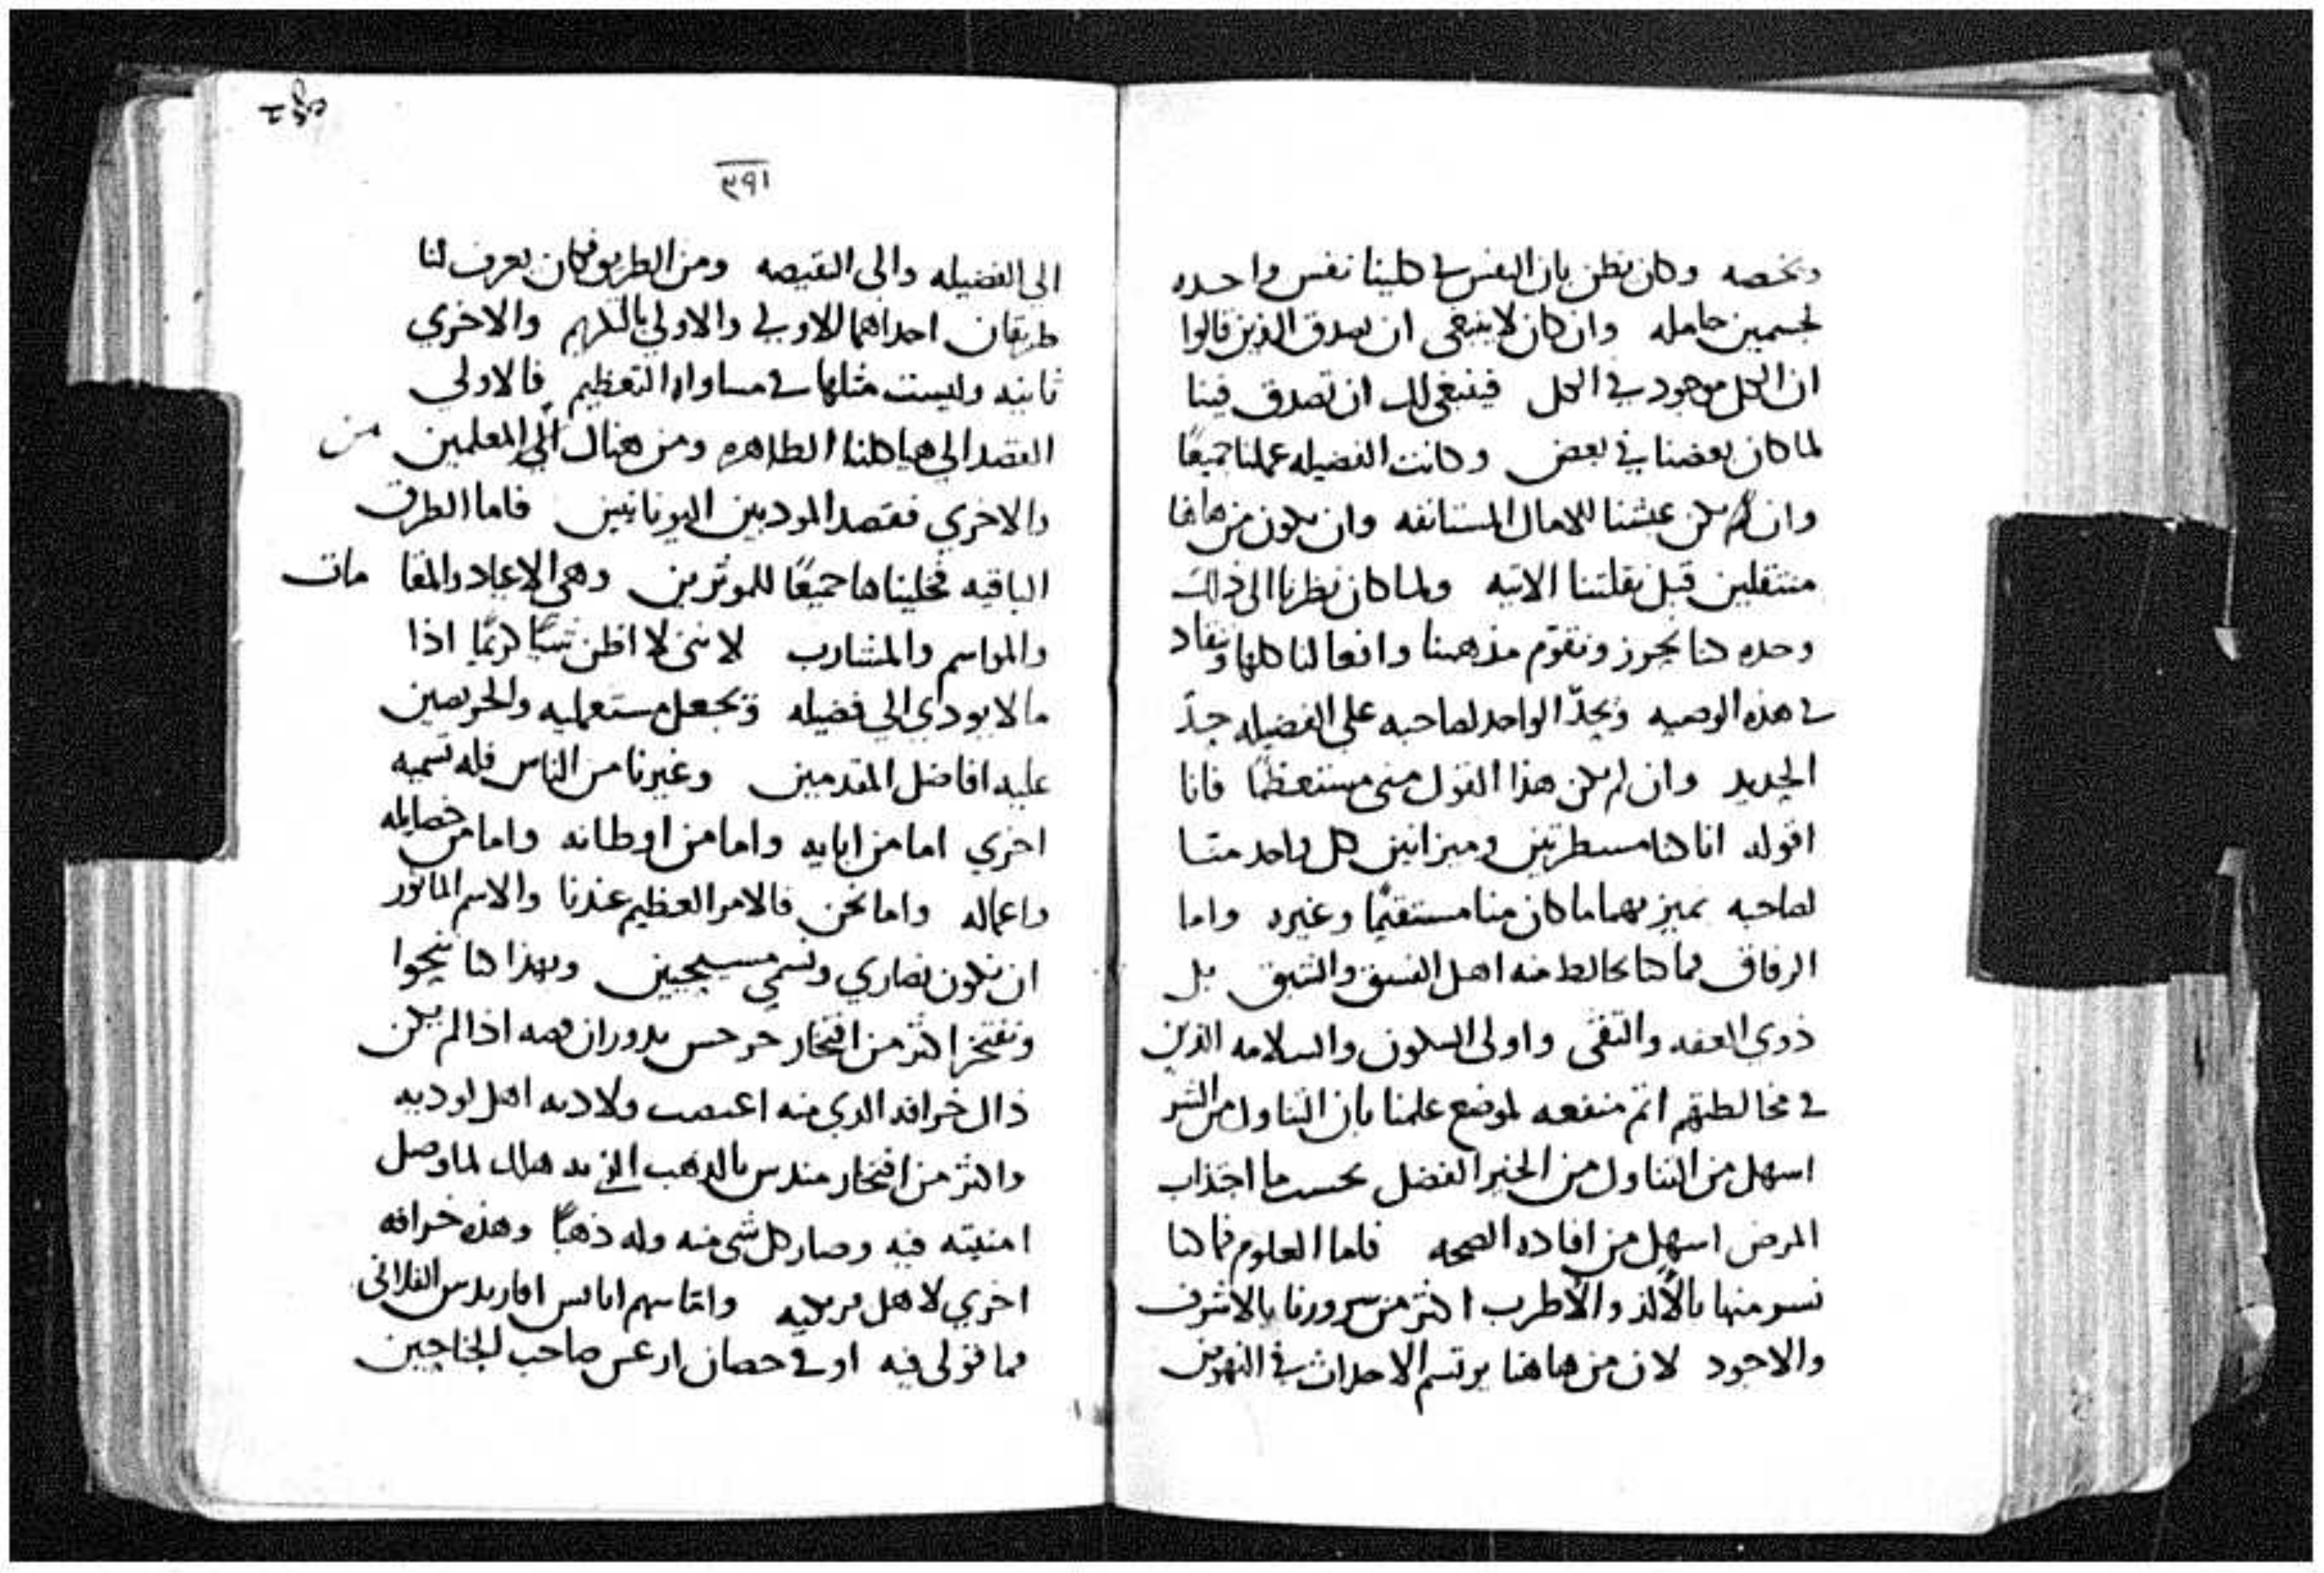 وبخصه وكان يظن بان النفس في كلينا نفس واحده
لجسمين حامله وان كان لا ينبغي ان نصدق الذين قالوا
ان الكل موجود في الكل فينبغي لك ان تصدق فينا
لما كان بعضنا في بعض وكانت الفضيله عملنا جميعًا
وان لم يكن عشنا للامال المستانفه وان يكون من هاهنا
منتقلين قبل نقلتنا الاتيه ولما كان نظرنا الى ذلك
وحده كنا نحرز ونقوّم مذهبنا وافعالنا كلها ونقاد
في هذه الوصيه ويحدّ الواحد لصاحبه على الفضيله حدّ
الحديد وان لم يكن هذا القول مني مستعظمًا فانا
اقوله انا كنا مسطرتين وميزانين كل واحد منا
لصاحبه نميز بهما ما كان منا مستقيمًا وغيره واما
الرفاق فما كنا نخالط منه اهل الفسق والشبق بل
ذوي العفه والتقى واولى السكون والسلامه الذين
في مخالطتهم اتم منفعه لموضع علمنا بان التناول من الشر
اسهل من التناول من الخير الفضل بحسب ما اجتذاب
المرض اسهل من افاده الصحه فاما العلوم فما كنا
نسر منها بالألذ والأطرب اكثر من سرورنا بالاشرف
والاجود لان من هاهنا يرتسم الاحداث في النهوض
٢٩١
الى الفضيله والى النقيصه ومن الطريق فكان يعرف لنا
طريقان احداهما للاولى والاولي بالتكريم والاخري
ثانيه وليست مثلها في مساواه التعظيم فالاولي
القصد الي هياكلنا الطاهره ومن هناك الي المعلمين من
والاخري فقصد المودبين اليونانيين فاما الطرق
الباقيه فخليناها جميعًا للموثرين وهي الاعياد والمقامات
والمواسم والمشارب لانني لا اظن شيًا كريمًا اذا
ما لا يودي الي فضيله ويجعل مستعمليه والحريصين
عليه افاضل المقدمين وغيرنا من الناس فله تسميه
اخري اما من ابايه واما من اوطانه واما من خصايله
واعماله واما نحن فالامر العظيم عندنا والاسم الماثور
ان نكون نصاري ونسمي مسيحيين وبهذا كنا ننحوا
ونفتخر اكثر من افتخار جرجس بدوران فصه اذا لم يكن
ذاك خرافه الذي منه اغتصب ولاديه اهل لوديه
واكثر من افتخار ميدس بالذهب الذي به هلك لما وصل
امنيته فيه وصار كل شي منه وله ذهبًا وهذه خرافه
اخري لاهل فريجيه واما سهم ابابس افاريدس الفلاني
فما قولي فيه او في حصان ارغس صاحب الجناحين